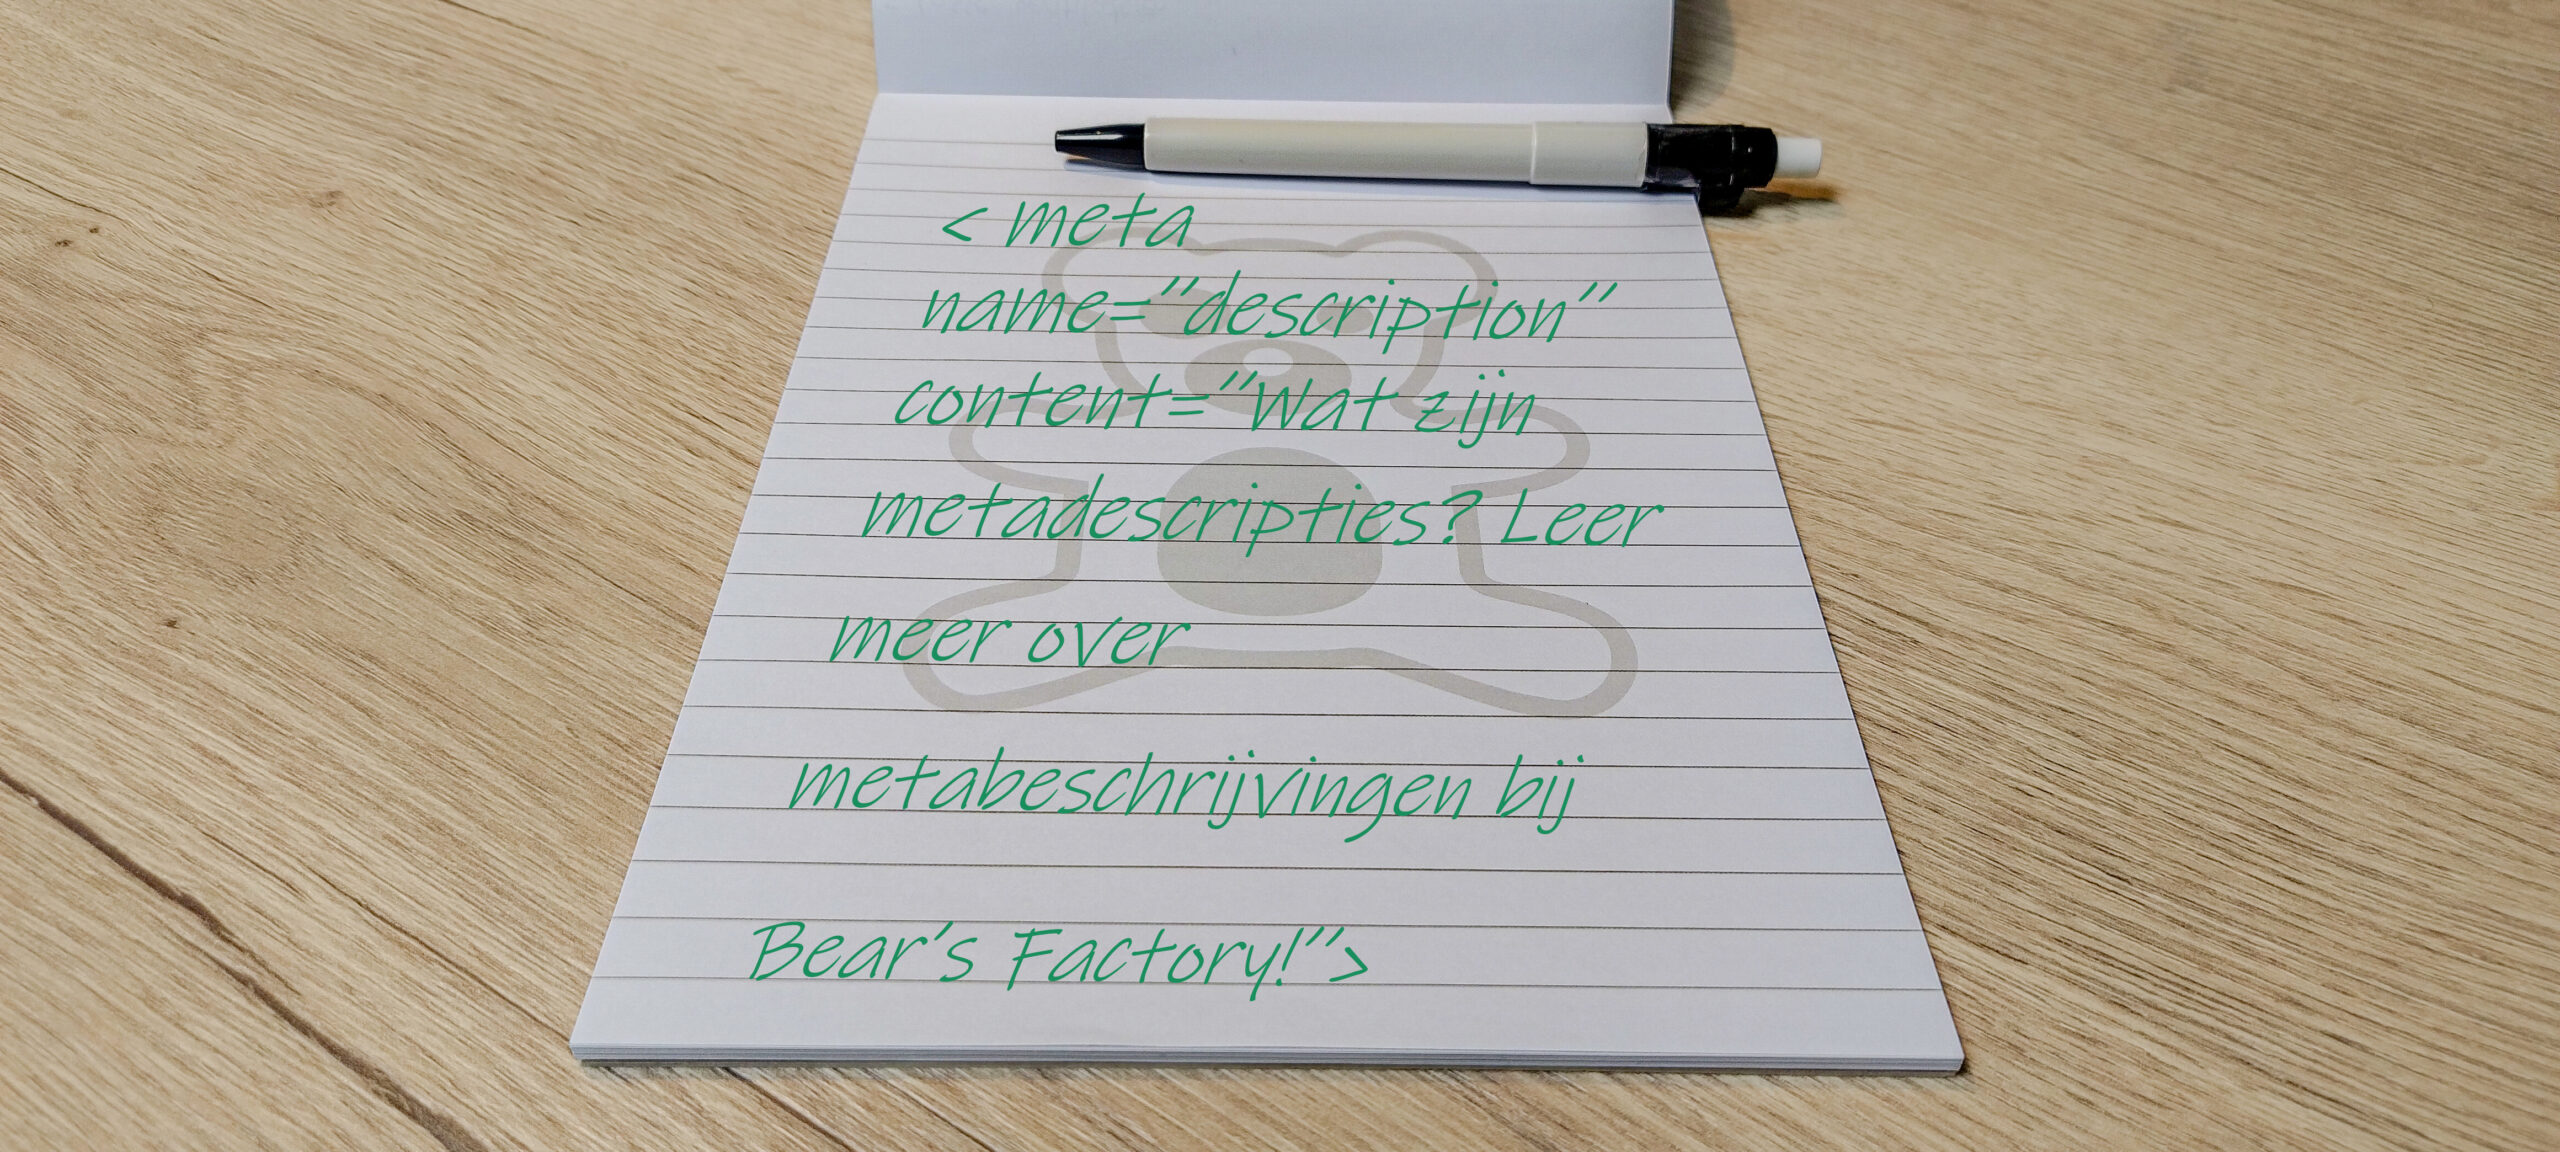 < meta
name="description"
content="Wat zijn
metadescripties? Leer
meer over
metabeschrijvingen bij
Bear's Factory!">